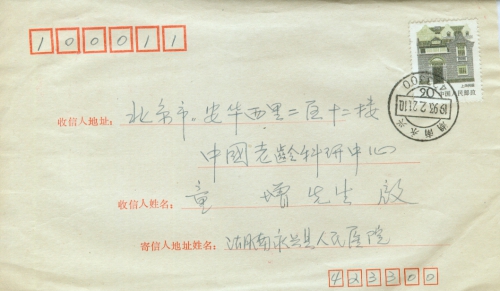 100011
上海民居
中国人民邮政
20
1993.2.21.10
湖南 永兴
收信人地址: 北京市.安华西里二区十二楼
中國老龄科研中心
收信人姓名: 童增先生 啟
寄信人地址姓名: 湖南永兴县人民医院
423300